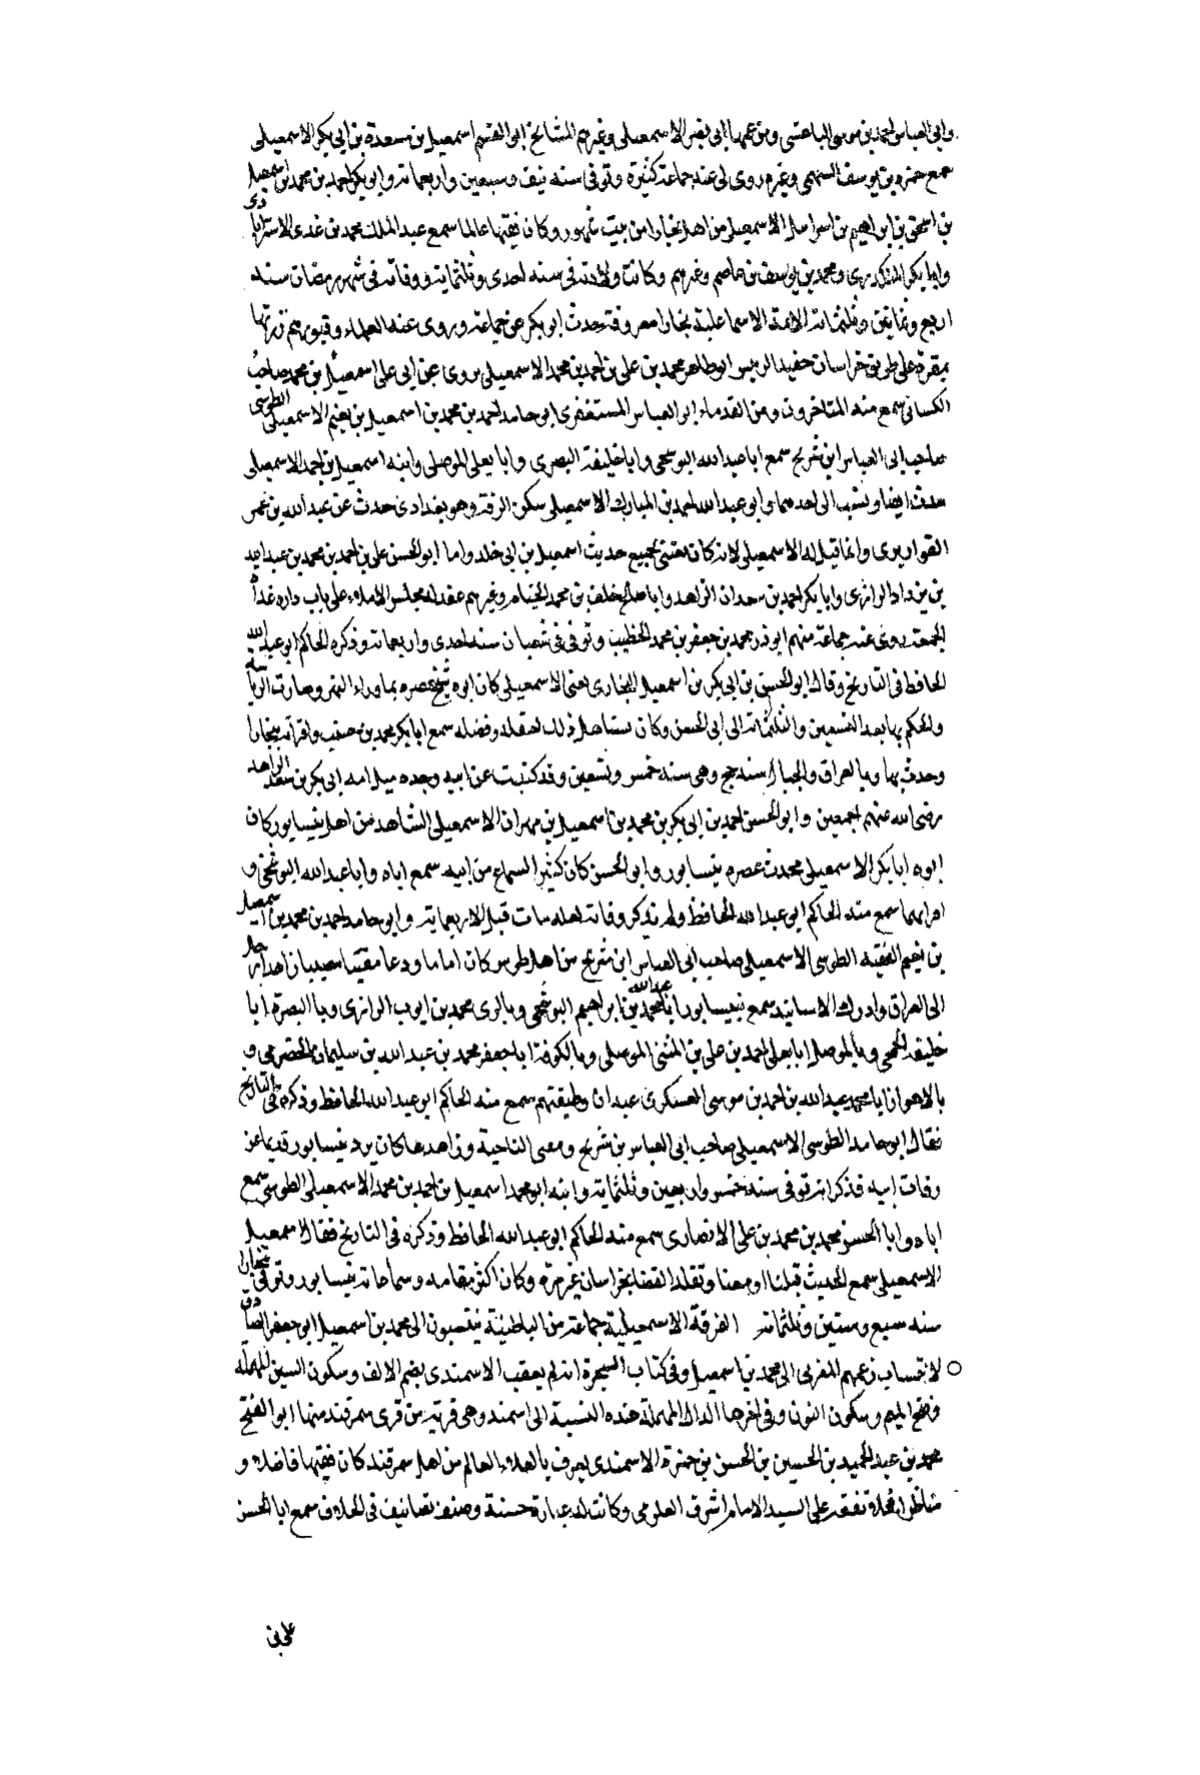 وابي العباس احمد بن موسى الباعشي ومن عمها ابي نصر الاسمعيلي وغيرهم المشائخ ابو القسم اسمعيل بن مسعدة بن ابي بكر الاسمعيلي
سمع حمزه بن يوسف السهمي وغيره روى لي عنه جماعة كثيرة وتوفي سنه نيف وسبعين واربعمائة وابو بكر احمد بن محمد بن اسمعيل
بن اسحق بن ابراهيم بن اسرائيل الاسمعيلي من اهل بخارا من بيت مشهور وكان فقيها عالما سمع عبد الملك محمد بن عدى الاسترابادى
وابا بكر المنكدرى ومحمد بن يوسف بن عاصم وغيرهم وكانت ولادته في سنه احدى وثلثمائة ووفاته في شهر رمضان سنه
اربع وثمانين وثلثمائة الائمة الاسماعلية بخارا معروفة حدث ابو بكر عن جماعة وروى عنه العلماء وقبورهم زرتها
بمقرة على طريق خراسان حفيد الرئيس ابو طاهر محمد بن علي بن احمد بن محمد الاسمعيلي يروى عن ابي علي اسمعيل بن محمد صاحب
الكسائي سمع منه المتاخرون ومن القدماء ابو العباس المستغفرى ابو حامد احمد بن محمد بن اسمعيل بن نعيم الاسمعيلي الطوسي
صاحب ابي العباس ابن شريح سمع ابا عبد الله البوشجي وابا خليفة البصري وابا يعلى الموصلي وابنه اسمعيل بن احمد الاسمعيلي
حدث ايضا ونسب الى احدهما وابو عبد الله احمد بن المبارك الاسمعيلي سكن الرقة وهو بغدادى حدث عن عبد الله بن عمر
القواريرى وانما قيل له الاسمعيلي لانه كان يعتني بجميع حديث اسمعيل بن ابي خلد واما ابو الحسن علي بن احمد بن محمد بن عبد الله
بن يزداد الرازى وابا بكر احمد بن سعدان الزاهد وابا صالح خلف بن محمد الخيام وغيرهم عقد له مجلس الاملاء على باب داره غداة
الجمعة روى عنه جماعة منهم ابو ذر محمد بن جعفر بن محمد الخطيب وتوفي في شعبان سنه احدى واربعمائة وذكره الحاكم ابو عبد الله
الحافظ في التاريخ وقال ابو الحسن بن ابي بكر بن اسمعيل البخارى يعني الاسمعيلي كان ابوه شيخ عصره بماوراء النهر وصارت الرياسة
والحكم بها بعد التسعين والثلثمائة الى ابي الحسن وكان يستاهل ذلك لعقله وفضله سمع ابا بكر محمد بن خنب واقرانه ببخارا
وحدث بها وبالعراق والجبال سنه حج وهي سنه خمس وتسعين وقد كتبت عن ابيه وجده ميل امه ابي بكر بن سعد الزاهد
رضي الله عنهم اجمعين وابو الحسن احمد بن ابي بكر بن محمد بن اسمعيل بن مهران الاسمعيلي الشاهد من اهل نيسابور كان
ابوه ابا بكر الاسمعيلي محدث عصره بنيسابور وابو الحسن كان كثير السماع من ابيه سمع اباه وابا عبد الله البوشجي و
اقرانهما سمع منه الحاكم ابو عبد الله الحافظ ولم يذكر وفاته لعله مات قبل الاربعمائة وابو حامد احمد بن محمد بن اسمعيل
بن نعيم الفقيه الطوسي الاسمعيلي صاحب ابي العباس ابن شريح من اهل طوس كان اماما ورعا مفتيا رحل
الى العراق وادرك الاسانيد سمع بنيسابور ابا عبد الله محمد بن ابراهيم البوشجي وبالرى محمد بن ايوب الرازى وبالبصرة ابا
خليفه الجمحي وبالموصل ابا يعلى احمد بن علي بن المثنى الموصلي وبالكوفة ابا جعفر محمد بن عبد الله بن سليمان الحضرمي و
بالاهواز ابا محمد عبد الله بن احمد بن موسى العسكرى عبدان وطبقتهم سمع منه الحاكم ابو عبد الله الحافظ وذكره في التاريخ
فقال ابو حامد الطوسي الاسمعيلي صاحب ابي العباس بن شريح ومفتي الناحية وزاهدها كان يرد نيسابور قديما عن
وفات ابيه فذكر انه توفي سنه خمس واربعين وثلثمائة وابنه ابو محمد اسمعيل بن احمد بن محمد الاسمعيلي الطوسي سمع
اباه وابا الحسن محمد بن محمد بن علي الانصارى سمع منه الحاكم ابو عبد الله الحافظ وذكره في التاريخ فقال اسمعيل
الاسمعيلي سمع الحديث قبلنا ومعنا وتقلد القضا بخراسان غير مرة وكان اكثر مقامه وسماعاته بنيسابور وتوفي ببخارا
سنه سبع وستين وثلثمائة الفرقة الاسمعيلية جماعة من الباطنية ينتسبون الى محمد بن اسمعيل ابو جعفر الصادق
لانتساب زعيمهم المغربي الى محمد بن اسمعيل وفي كتاب الشجرة انه لم يعقب الاسمندى بضم الالف وسكون السين المهملة
وفتح الميم وسكون النون وفي اخرها الدال المهملة هذه النسبة الى اسمند وهي قرية من قرى سمرقند منها ابو الفتح
محمد بن عبد الحميد بن الحسين بن الحسن بن حمزة الاسمندى يعرف بالعلاء العالم من اهل سمرقند كان فقيها فاضلا و
مناظرا فحلا تفقه على السيد الامام اشرف العلوى وكانت له عبارة حسنة وصنف تصانيف في الخلاف سمع ابا الحسن